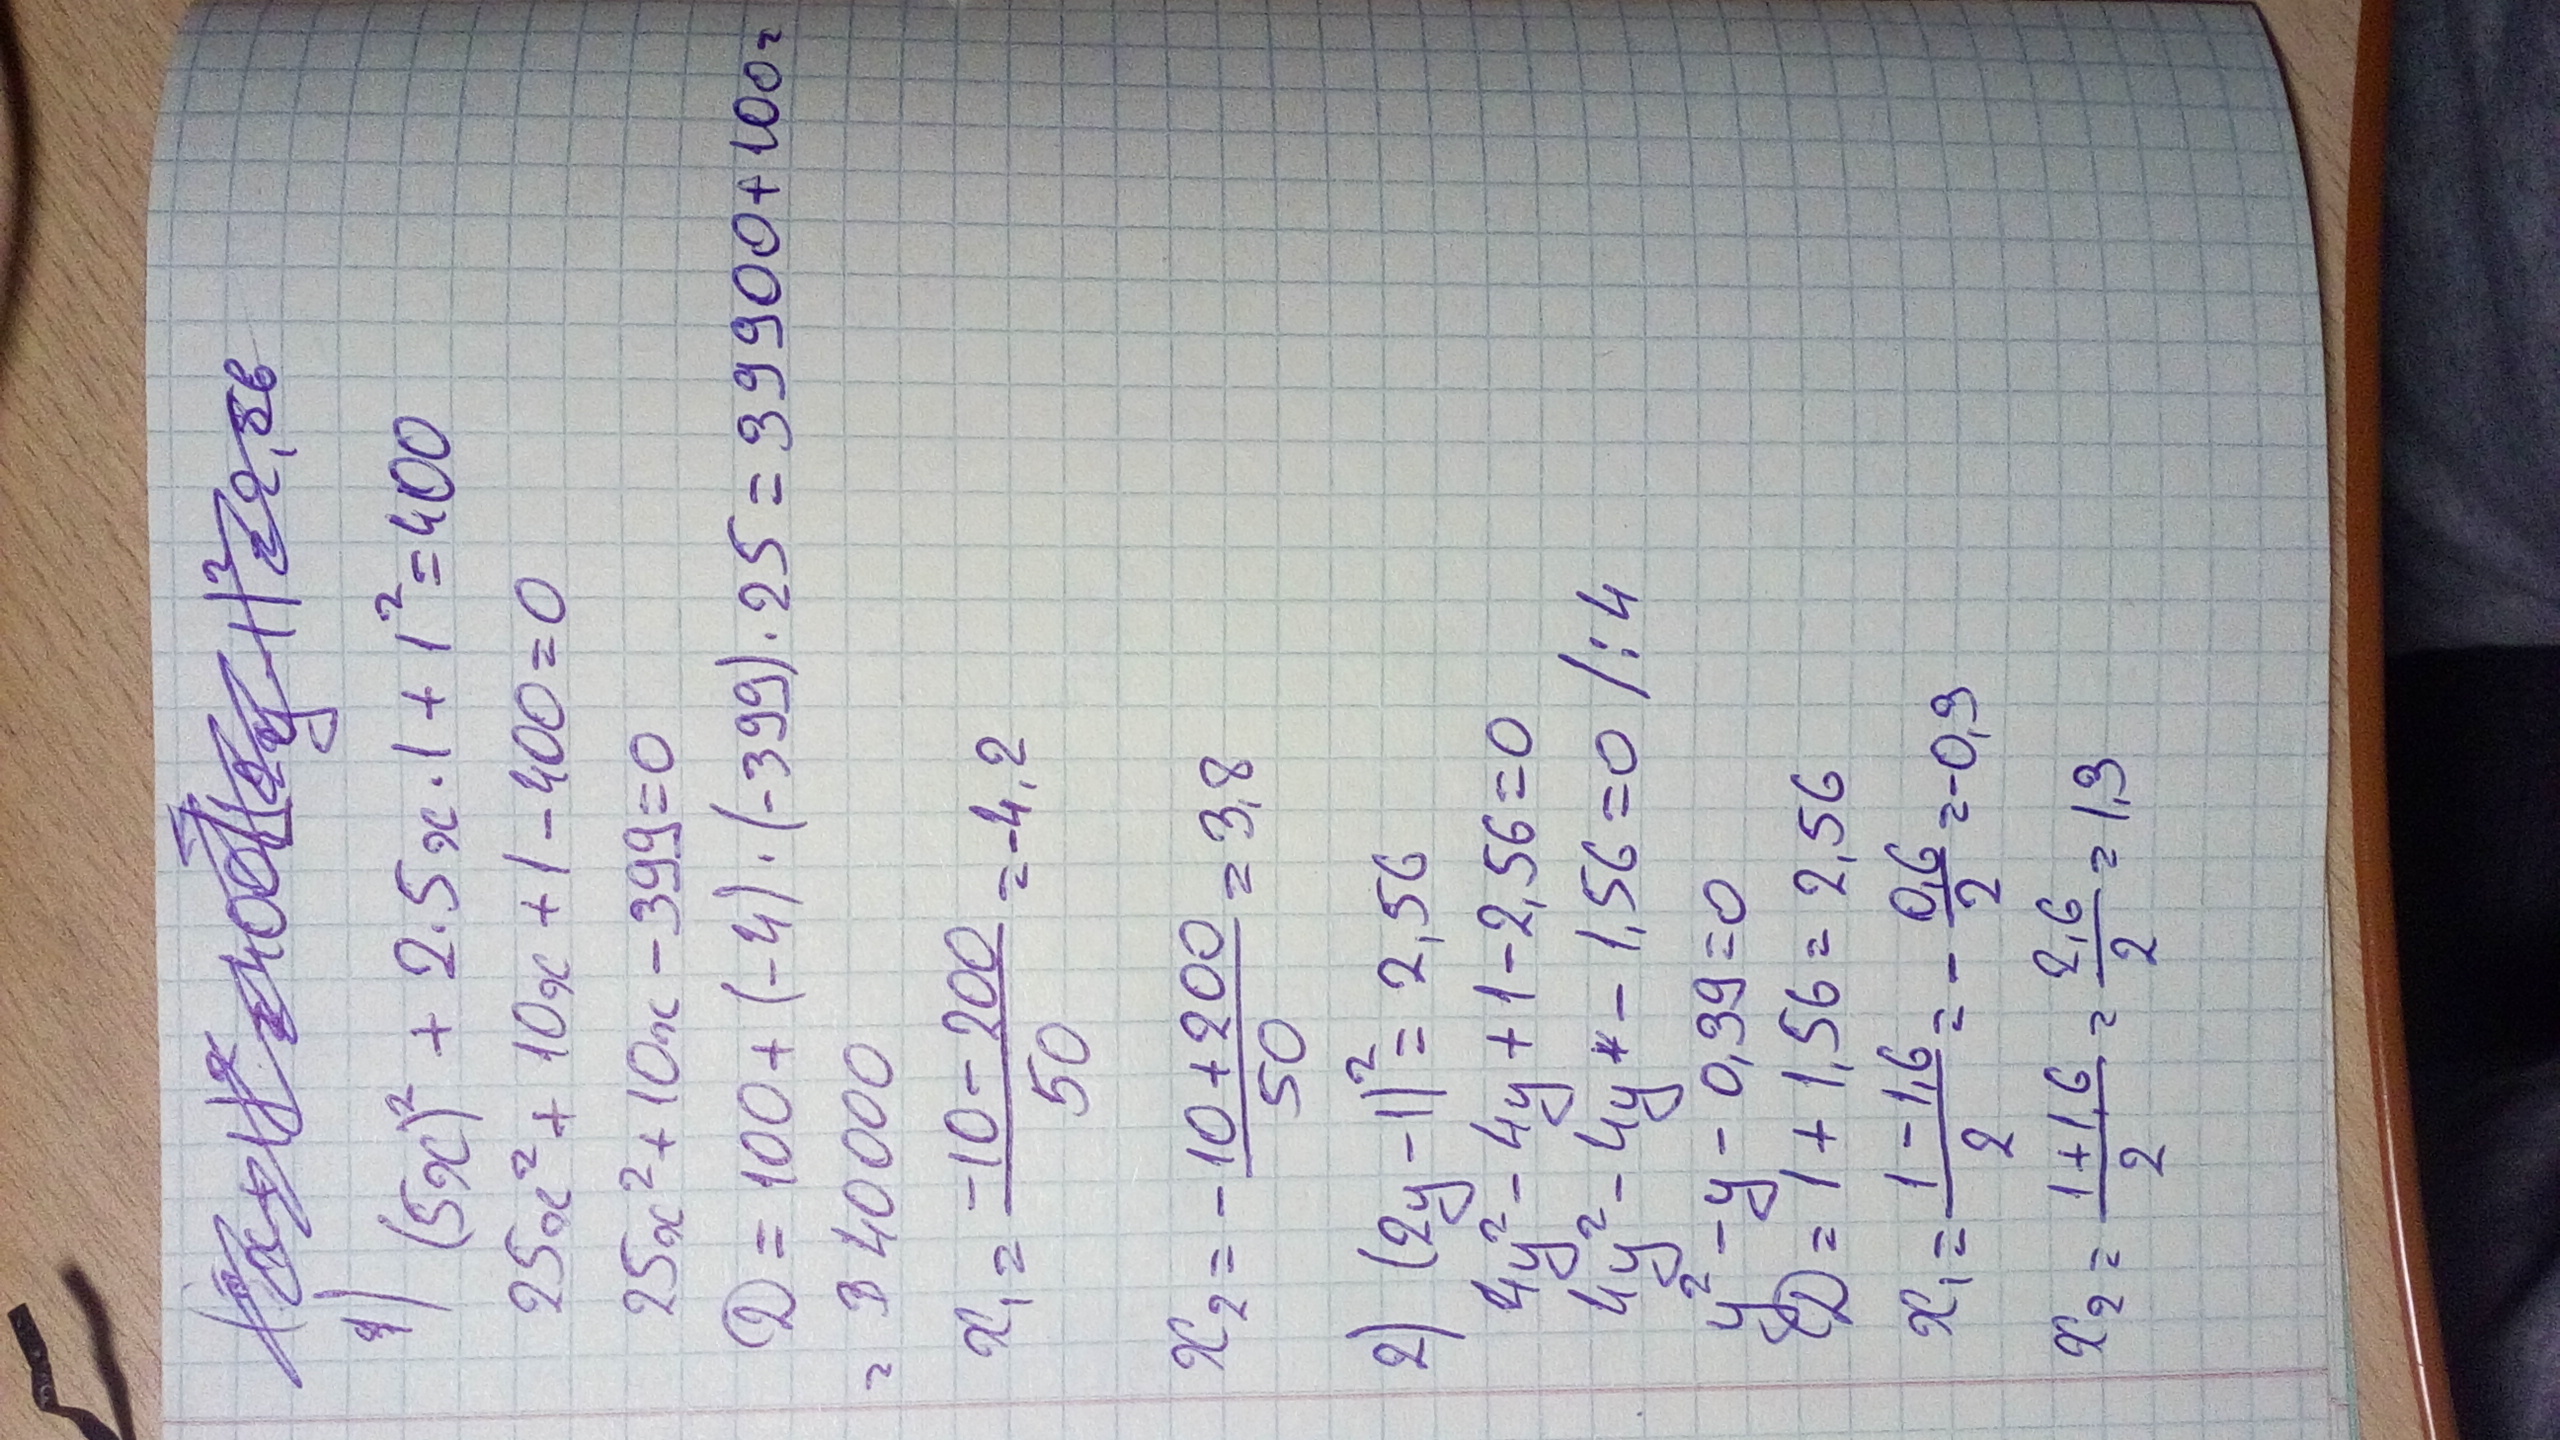 1) (5x)² + 2·5x·1+1²=400
25x²+10x+1-400=0
25x²+10x-399=0
D=100+(-4)·(-399)·25=39900+100=
= 40000
x₁= -10-200/50 =-4,2
x₂= -10+200/50 =3,8
2) (2y-1)²=2,56
4y²-4y+1-2,56=0
4y²-4y-1,56=0 /:4
y²-y-0,39=0
D=1+1,56=2,56
x₁= 1-1,6/2 = - 0,6/2 =-0,3
x₂= 1+1,6/2 = 2,6/2 =1,3